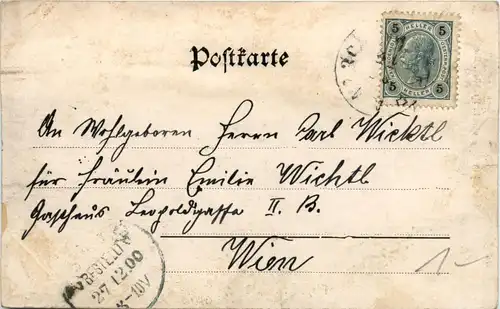 Postkarte
5 HELLER 5
5 HELLER 5
An Wohlgeboren Herrn Carl Wichtl
für Fräulein Emilie Wichtl
Gasthaus Leopoldgasse II. B.
Wien
BESTELLT
27.12.00
1-